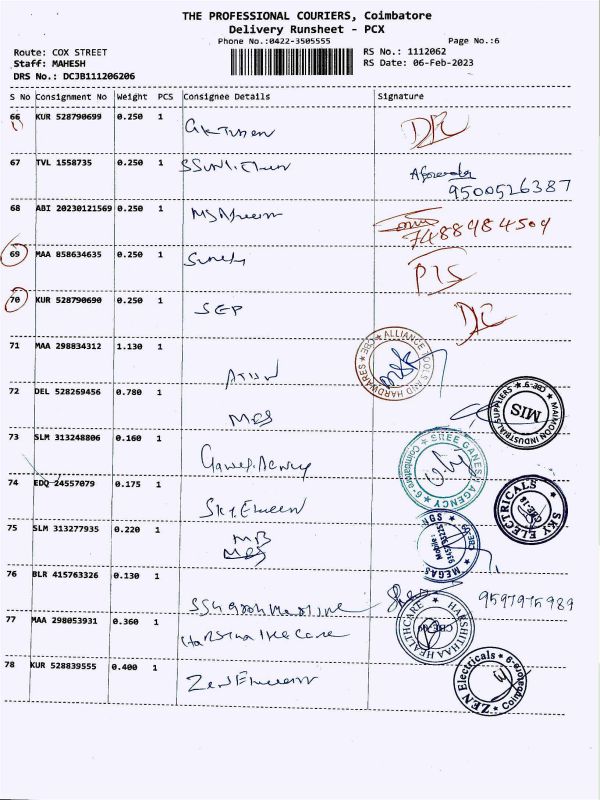 THE PROFESSIONAL COURIERS, Coimbatore
Delivery Runsheet - PCX
Phone No.:0422-3505555 Page No.:6
Route: COX STREET RS No.: 1112062
Staff: MAHESH RS Date: 06-Feb-2023
DRS No.: DCJB111206206
S No Consignment No Weight PCS Consignee Details Signature
66 KUR 528790699 0.250 1
67 TVL 1558735 0.250 1
9500526387
68 ABI 20230121569 0.250 1
7488984504
69 MAA 858634635 0.250 1
70 KUR 528790690 0.250 1 SEP
71 MAA 298834312 1.130 1
ALLIANCE TOOLS AND HARDWARES ★ CBE ★
72 DEL 528269456 0.780 1 MES
MAIMOON INDUSTRIAL SUPPLIERS ★ CBE-9 ★
MIS
73 SLM 313248806 0.160 1
SREE GANESH AGENCY ★ Coimbatore-9 ★
74 EDQ 24557079 0.175 1
SKY ELECTRICALS ★ CBE-18 ★
75 SLM 313277935 0.220 1 MB
MES
76 BLR 415763326 0.130 1 9597975989
77 MAA 298053931 0.360 1 Harsitha He Care
HARSHITHAA HEALTHCARE
78 KUR 528839555 0.400 1
ZEN Electricals ★ Coimbatore-9 ★